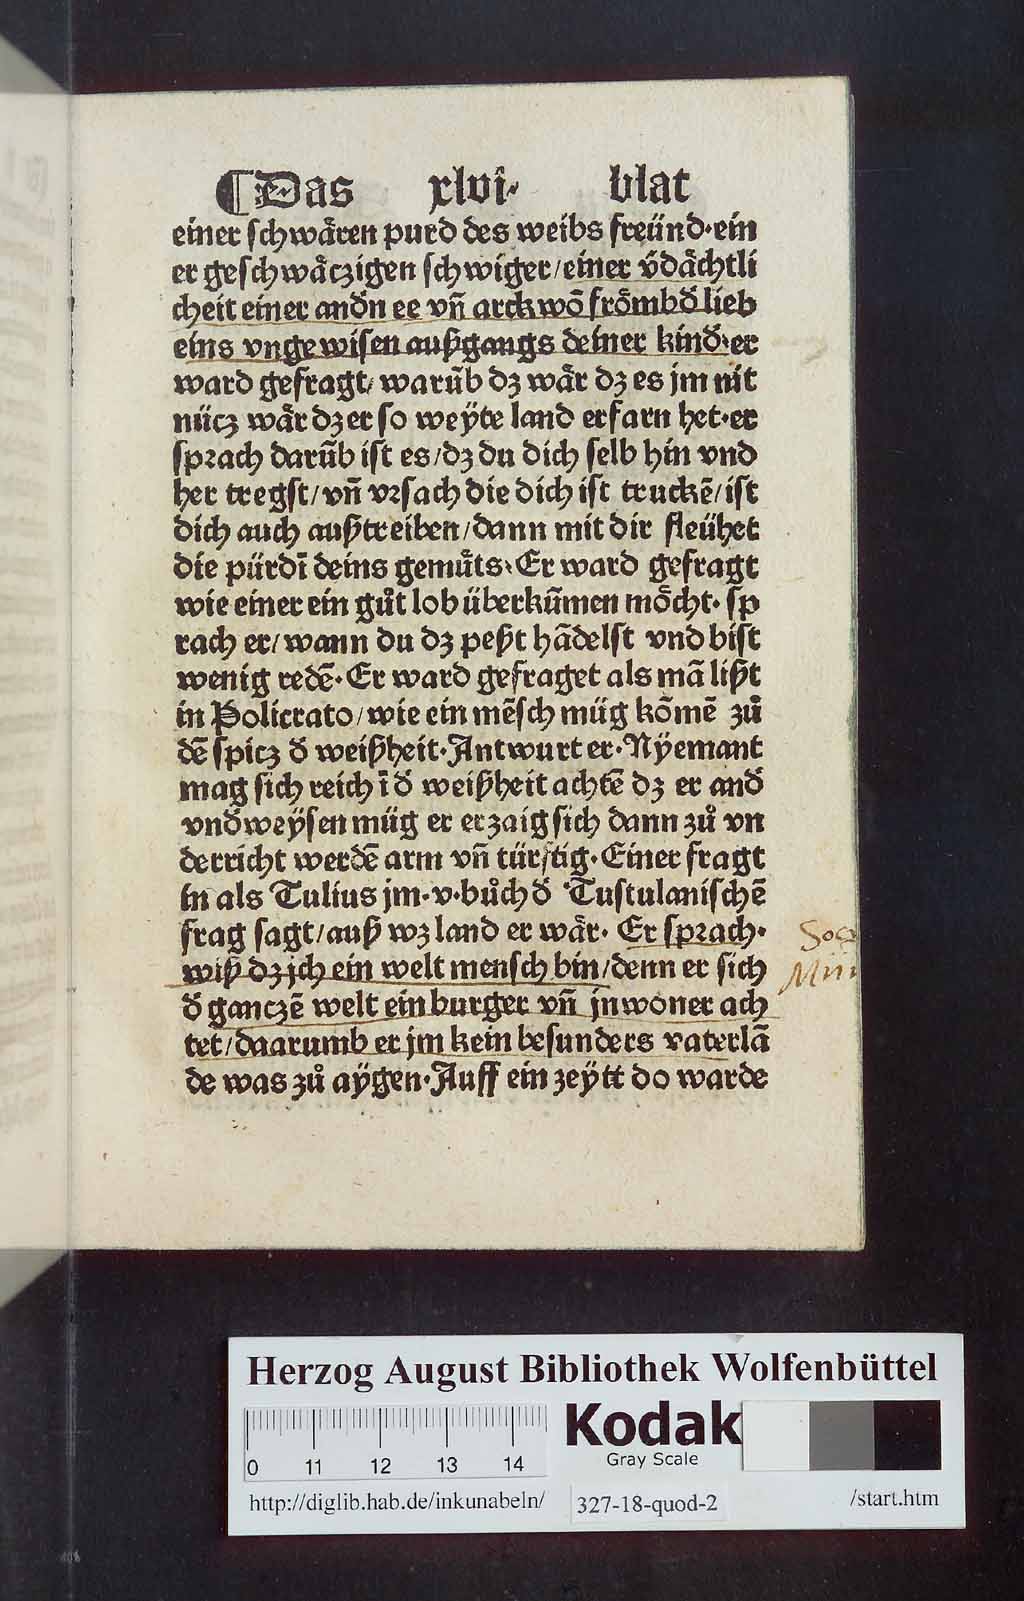 ¶Das xlvi· blat
einer schwåren purd des weibs freünd·ein
er geschwåczigen schwiger/einer v̄dåchtli
cheit einer andn̄ ee vn̄ arckwō frömbd̄ lieb
eins vngewisen außgangs deiner kind̄·er
ward gefragt/warūb dz wår dz es jm nit
nücz wår dz er so weÿte land erfarn het·er
sprach darūb ist es/dz du dich selb hin vnd
her tregst/vn̄ vrsach die dich ist truckē/ist
dich auch außtreiben/dann mit dir fleühet
die pürdī deins gemůts·Er ward gefragt
wie einer ein gůt lob überkūmen möcht· sp
rach er/wann du dz peßt hādelst vnd bist
wenig redē·Er ward gefraget als mā lißt
in Policrato/wie ein mēsch müg kōmē zů
dē spicz d̄ weißheit·Antwurt er·Nÿemant
mag sich reich ī d̄ weißheit achtē dz er and̄
vnd̄weÿsen müg er erzaig sich dann zů vn
derricht werdē arm vn̄ türftig·Einer fragt
in als Tulius jm·v·bůch d̄ Tustulanischē
frag sagt/auß wz land er wår· Er sprach·
wiß dz jch ein welt mensch bin/denn er sich
d̄ ganczē welt ein burger vn̄ jnwoner ach
tet/daarumb er jm kein besunders vaterlā
de was zů aÿgen·Auff ein zeÿtt do warde
Herzog August Bibliothek Wolfenbüttel
Kodak
Gray Scale
0 11 12 13 14
http://diglib.hab.de/inkunabeln/ 327-18-quod-2 /start.htm